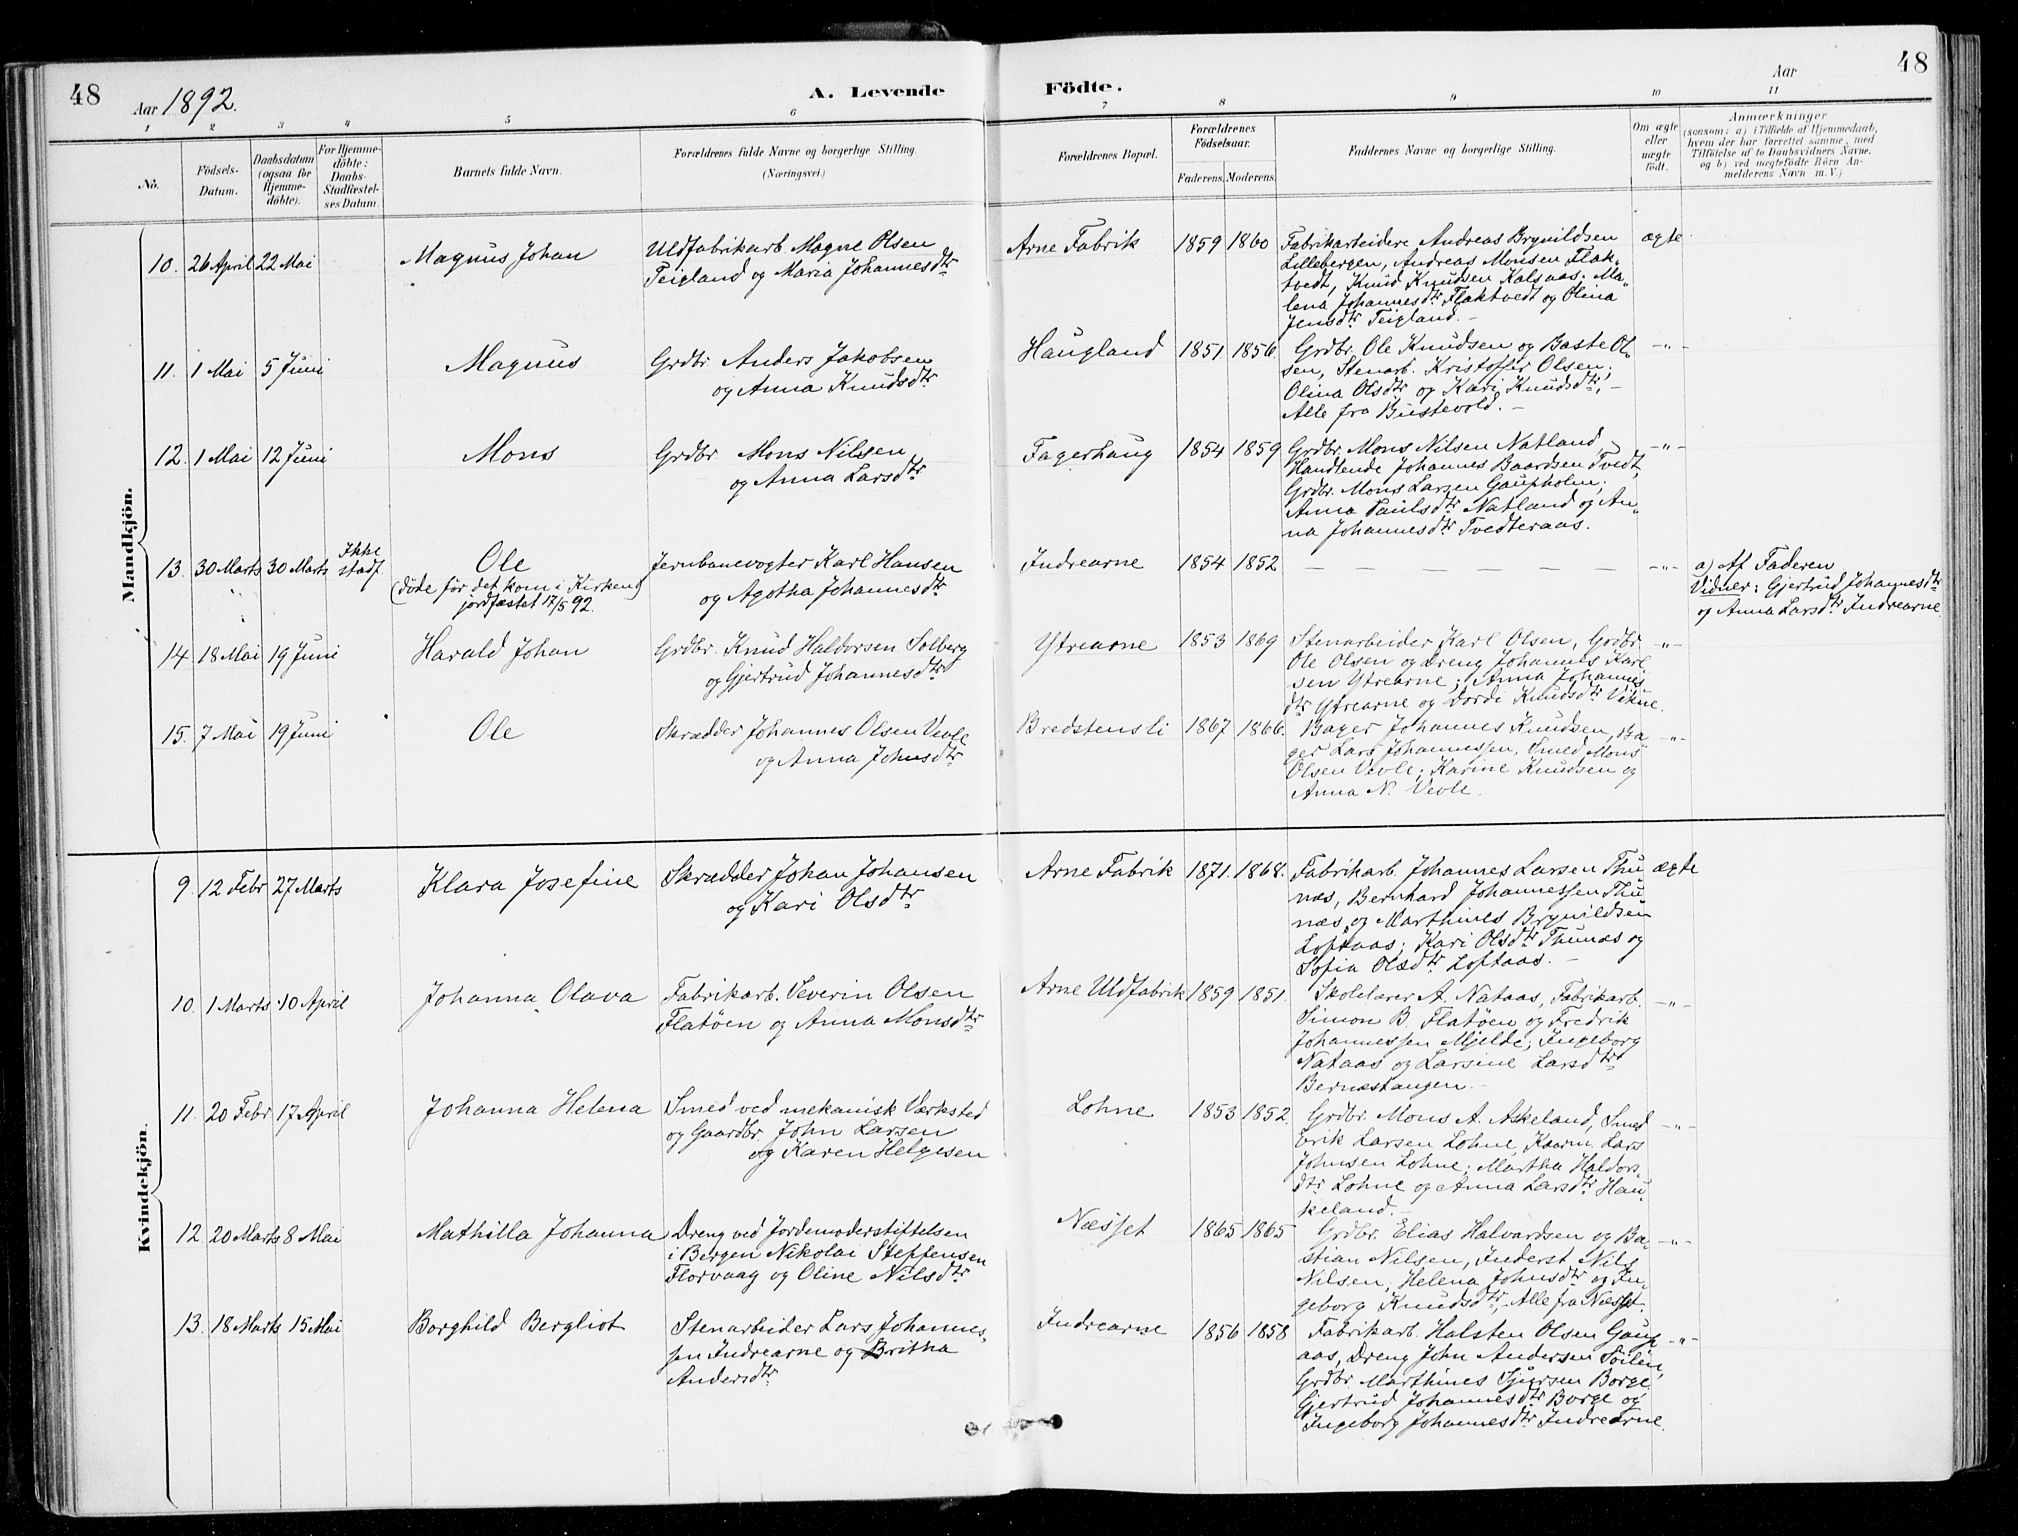 48
Aar 1892.
A. Levende
Födte.
Aar
48
1 2 3 4 5 6 7 8 9 10 11
No.
Födsels-Datum.
Daabsdatum (ogsaa for Hjemme-döbte).
For Hjemme-döbte: Daabs-Stadfæstel-ses Datum.
Barnets fulde Navn.
Forældrenes fulde Navne og borgerlige Stilling.
(Næringsvei.)
Forældrenes Bopæl.
Forældrenes Födselsaar.
Faderens. Moderens.
Faddernes Navne og borgerlige Stilling.
Om ægte eller uægte födt.
Anmærkninger
(saasom: a) i Tilfælde af Hjemmedaab,
hvem der har forrettet samme, med
Tilföielse af to Daabsvidners Navne,
og b) ved uægtefödte Börn An-
melderens Navn m. V.)
Mandkjön.
10. 26 April 22 Mai Magnus Johan
Uldfabrikarb. Magne Olsen
Teigland og Maria Johannesdtr
Arne Fabrik 1859 1860
Fabrikarbeidere Andreas Brynildsen
Lillebergen, Andreas Monsen Flak-
tvedt, Knud Knudsen Kalsaas; Ma-
lena Johannesdtr Flaktvedt og Olina
Jensdtr Teigland. –
ægte
11. 1 Mai 5 Juni Magnus
Grdbr. Anders Jakobsen
og Anna Knudsdtr
Haugland 1851 1856
Grdbr. Ole Knudsen og Baste Ol-
sen, Stenarb. Kristoffer Olsen;
Olina Olsdtr og Kari Knudsdtr, –
Alle fra Bustevold. –
–"–
12. 1 Mai 12 Juni Mons
Grdbr. Mons Nilsen
og Anna Larsdtr
Fagerhaug 1854 1859
Grdbr. Mons Nilsen Natland
Handlende Johannes Baardsen Tvedt,
Grdbr. Mons Larsen Gaupholm;
Anna Paulsdtr Natland og An-
na Johannesdtr Tvedteraas.
–"–
13. 30 Marts 30 Marts Ikke stadf.
Ole
(døde før det kom i Kirken)
jordfæstet 17/5 92.
Jernbanevogter Karl Hansen
og Agotha Johannesdtr
Indrearne 1854 1852
– – – – – – –
–"–
a) Af Faderen
Vidner: Gjertrud Johannesdtr
og Anna Larsdtr Indrearne.
14 18 Mai 19 Juni Harald Johan
Grdbr. Knud Haldorsen Solberg
og Gjertrud Johannesdtr
Ytrearne 1853 1869
Stenarbeider Karl Olsen, Grdbr.
Ole Olsen og Dreng Johannes Karl
sen Ytrearne; Anna Johannes
dtr Ytrearne og Dordi Knudsdtr Vikne.
–"–
15. 7 Mai 19 Juni Ole
Skrædder Johannes Olsen Vevle
og Anna Johnsdtr
Bredstensli 1867 1866.
Bager Johannes Knudsen, Ba-
ger Lars Johannessen, Smed Mons
Olsen Vevle; Karine Knudsen og
Anna N. Vevle.
–"–
Kvindekjön.
9. 12 Febr 27 Marts Klara Josefine
Skrædder Johan Johansen
og Kari Olsdtr
Arne Fabrik 1871. 1868.
Fabrikarb. Johannes Larsen Thu-
næs, Bernhard Johannessen Thu
næs, og Marthines Brynildsen
Loftaas; Kari Olsdtr Thunæs og
Sofia Olsdtr Loftaas. –
ægte
10. 1 Marts 10 April Johanna Olava
Fabrikarb. Severin Olsen
Flatøen og Anna Monsdtr
Arne Uldfabrik 1859 1851.
Skolelærer A. Nataas, Fabrikarb.
Simon B. Flatøen og Fredrik
Johannessen Mjelde; Ingeborg
Nataas og Larsine Larsdtr
Bernæstangen. –
–"–
11. 20 Febr 17 April Johanna Helena
Smed ved mekanisk Værksted
og Gaardbr. John Larsen
og Karen Helgesen
Lohne 1853 1852
Grdbr. Mons A. Askeland, Smed
Erik Larsen Lohne, Kaarm. Lars
Johnsen Lohne; Martha Haldors
dtr Lohne og Anna Larsdtr Hau-
keland. –
–"–
12. 20 Marts 8 Mai Mathilla Johanna
Dreng ved Jordemoderstiftelsen
i Bergen Nikolai Steffensen
Florvaag og Oline Nilsdtr
Næsset 1865 1865
Grdbr. Elias Halvardsen og Ba-
stian Nilsen, Inderst Nils
Nilsen; Helena Johnsdtr og In-
geborg Knudsdtr, Alle fra Næsset.
–"–
13. 18 Marts 15 Mai Borghild Bergliot
Stenarbeider Lars Johannes-
sen Indrearne og Britha
Andersdtr
Indrearne 1856 1858
Fabrikarb. Halsten Olsen Gaup
aas, Dreng John Andersen Söilen,
Grdbr Marthines Sjursen Borge
Gjertrud Johannesdtr Borge og
Ingeborg Johannesdtr Indrearne.
–"–